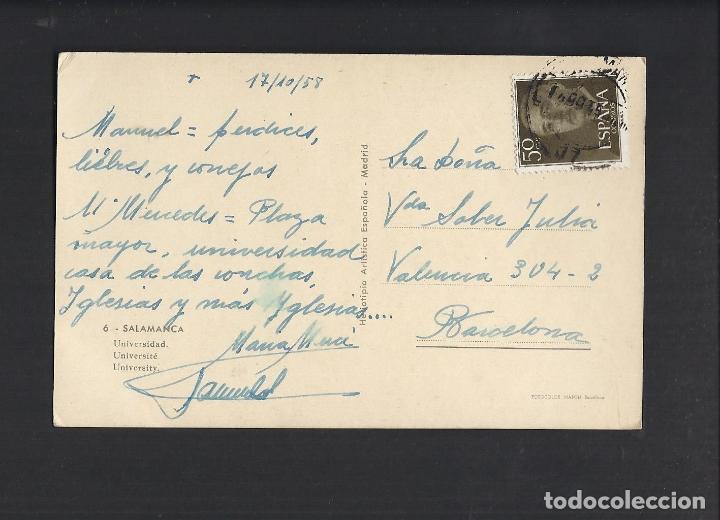 + 17/10/58
Manuel = perdices,
liebres, y conejos
Mª Mercedes = Plaza
mayor, universidad
casa de las conchas,
Iglesias y más Iglesias....
Maria
Manuel
6 - SALAMANCA
Universidad.
Université
University.
Heliotipia Artística Española - Madrid
50
ESPAÑA
CORREOS
Sra Doña
Vda Soler Juliá
Valencia 304-2
Barcelona
todocoleccion